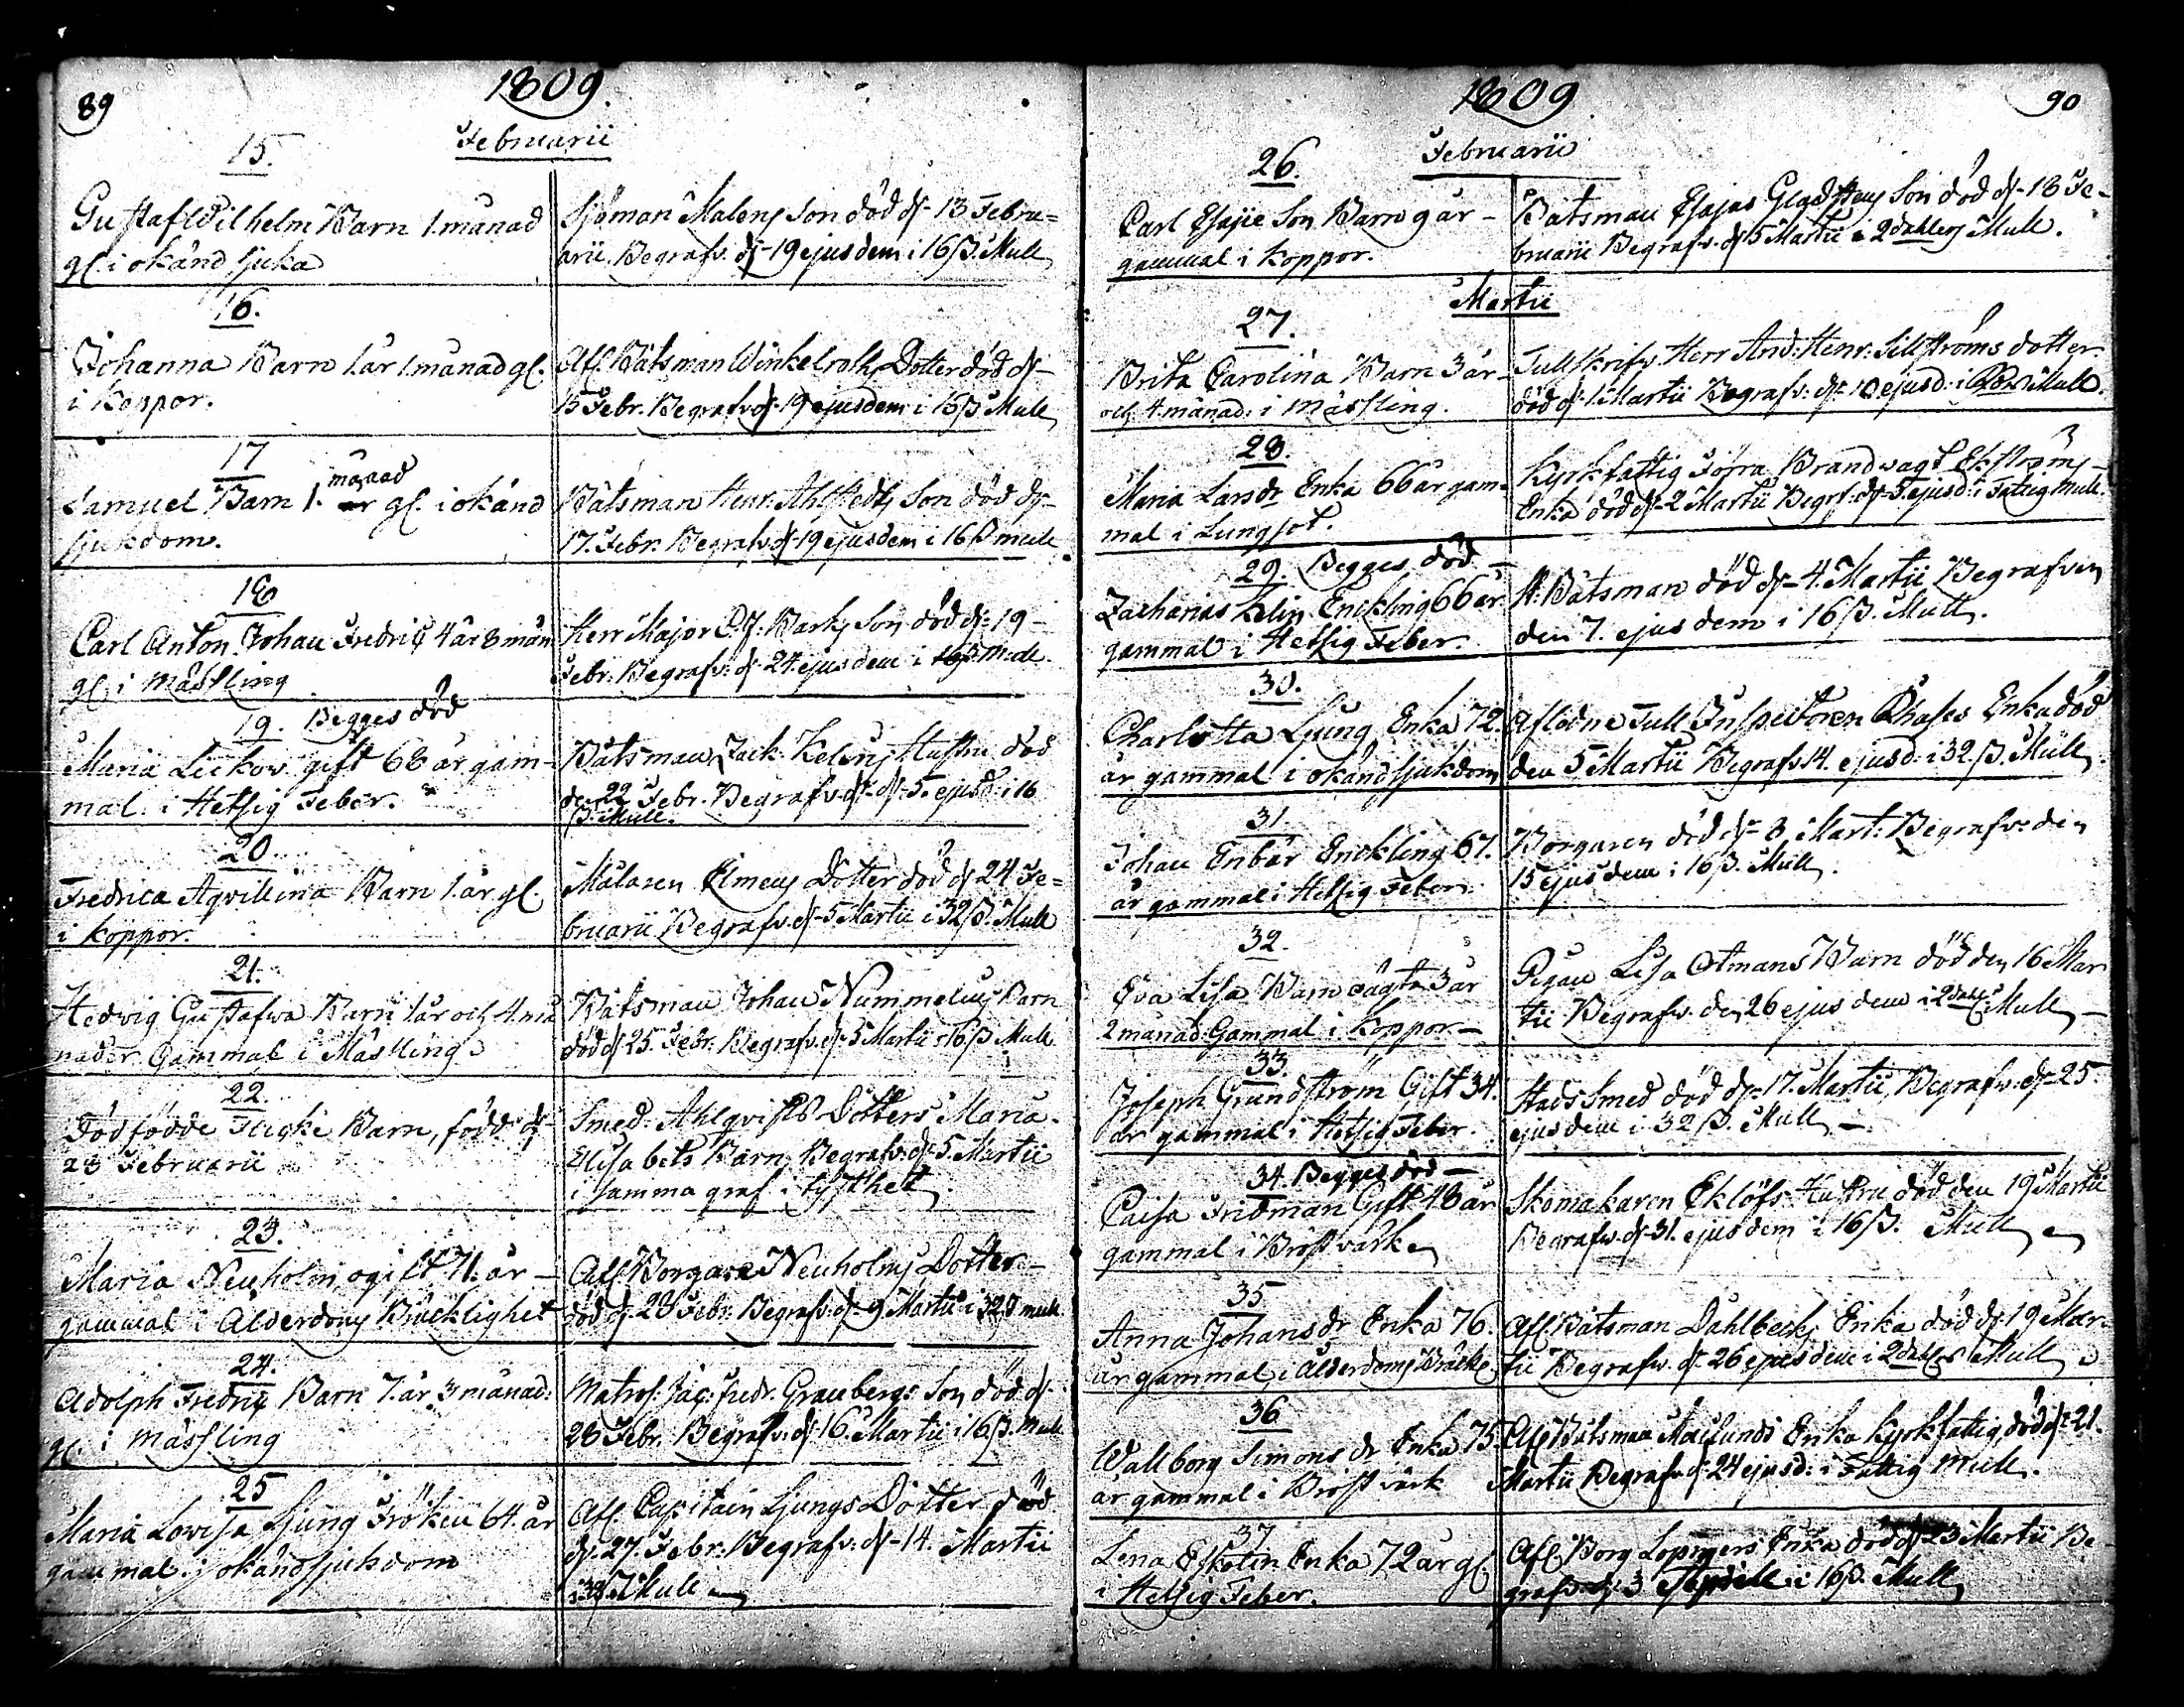 89
1809.
Februarii
15.
Gustaf Vilhelm Barn 1. månad
gl. i okänd sjuka
Sjöman Malens son död d. 13 Febru=
arii. Begrafv. d. 19 ejusdem i 16 ß. Mull
16.
Johanna Barn 1. år 1. månad gl.
i Koppor.
Afl. Båtsman Winkelroths Dotter död d.
15 Febr. Begrafv. d. 19 ejusdem i 16 ß Mull
17
Samuel Barn 1. månad gl. i okänd
sjukdom.
Båtsman Henr. Ahlstedts Son död d.
17. Febr. Begrafv. d. 19 ejusdem i 16 ß mull
18
Carl Anton Johan Fredric 4 år 8 mån
gl. i Mässling
Herr Major Barks Son död d. 19
Febr. Begrafv. d. 24 ejusdem i 16 ß Mull.
19. Begges död
Maria Lickow gift 68 år gam-
mal i Hetsig Feber.
Båtsman Zach. Kelins Hustru död
den 22 Febr. Begrafv. d. 5. ejusd. i 16
ß. Mull.
20
Fredrica Aqvilina Barn 1. år gl.
i Koppor.
Målaren Elmens Dotter död d. 24 Fe=
bruarii Begrafv. d. 5 Martii i 32 ß. Mull
21.
Hedvig Gustafva Barn 1 år och 4. må
nader Gammal i Mässling
Båtsman Johan Nummelins Barn
död d. 25. Febr. Begrafv. d. 5 Martii i 16 ß Mull
22.
Dödfödde Flicke Barn, född d.
23 Februarii
Smed. Ahlqvists Dotters Maria
Elisabets Barn, Begrafv. d. 5. Martii
i samma graf i tysthet
23.
Maria Neuholm ogift 71. år
gammal i Ålderdoms Bräcklighet
Afl. Borgare Neuholms Dotter
död d. 28 Febr. Begrafv. d. 9 Martii i 32 ß mull
24.
Adolph Fredric Barn 7. år 3 månad:
gl. i Mässling
Matros. Jac: Fredr. Granbergs Son död d.
28 Febr. Begrafv. d. 16. Martii i 16 ß. Mull
25
Maria Lovisa Ljung Fröken 64. år
gammal i okänd sjukdom
Afl. Capitain Ljungs Dotter död
d. 27. Febr. Begrafv. d. 14. Martii
i 32 ß. Mull
1809
90
Februarii
26.
Carl Esajæ Son Barn 9 år
gammal i Koppor.
Båtsman Esajas Gladstens Son död d. 18 Fe-
bruarii Begrafv. d. 5 Martii i 2 dahlers Mull.
Martii
27.
Brita Carolina Barn 3 år
och 4. månad. i Mässling.
Tullskrifv. Herr And: Henr. Sillströms dotter
död d. 1 Martii Begrafv: d. 10 ejusd. i Mull.
28.
Maria Larsdr Enka 66 år gam-
mal i Lungsot.
Kyrkfattig Förra Brandvagt Ekströms
Enka död d. 2 Martii Begrf: d. 5 ejusd. i Fattig mull.
29. Begges död
Zacharias Kelin Enckling 66 år
gammal i Hetsig Feber.
A. Båtsman död d. 4. Martii Begrafven
den 7. ejusdem i 16 ß. Mull.
30.
Charlotta Ljung Enka 72.
år gammal i okänd sjukdom
Aflidne Tull Inspectoren Enka död
den 5 Martii Begrafv 14. ejusd: i 32. ß. Mull
31.
Johan Enbär Enckling 67.
år gammal i Hetsig Feber.
Borgaren död d. 8. Mart: Begrafv: den
15 ejusdem i 16 ß. Mull.
32.
Eva Lisa Barn oägta 3 år
2 månad: Gammal i Koppor
Pigan Lisa Ostmans Barn död den 16 Mar
tii Begrafv. den 26 ejusdem i 2 dahl. Mull
33.
Joseph Grundström Gift 34.
år gammal i Hetsig Feber.
Stads Smed död d. 17. Martii Begrafv. d. 25.
ejusdem i 32 ß. Mull
34. Begges död
Caisa Fridman Gift 48 år
gammal i Bröstvärk
Skomakaren Eklöfs Hustru död den 19 Martii
Begrafv. d. 31. ejusdem i 16 ß. Mull
35
Anna Johansdr Enka 76.
år gammal i ålderdoms Bräckl.
Afl. Båtsman Dahlbecks Enka död d. 19 Mar-
tii Begrafv. d. 26 ejusdem i 2 dahlers Mull
36
Wallborg Simonsdr Enka 75.
år gammal i Bröstvärk
Afl. Båtsman Enka Kyrkfattig, död d. 21.
Martii Begrafv. d. 24 ejusd: i Fattig mull.
37
Lena Enka 72 år gl.
i Hetsig Feber.
Afl. Borg Enka död d. 23 Martii Be-
grafv. d. 3 Aprill i 16 ß. Mull